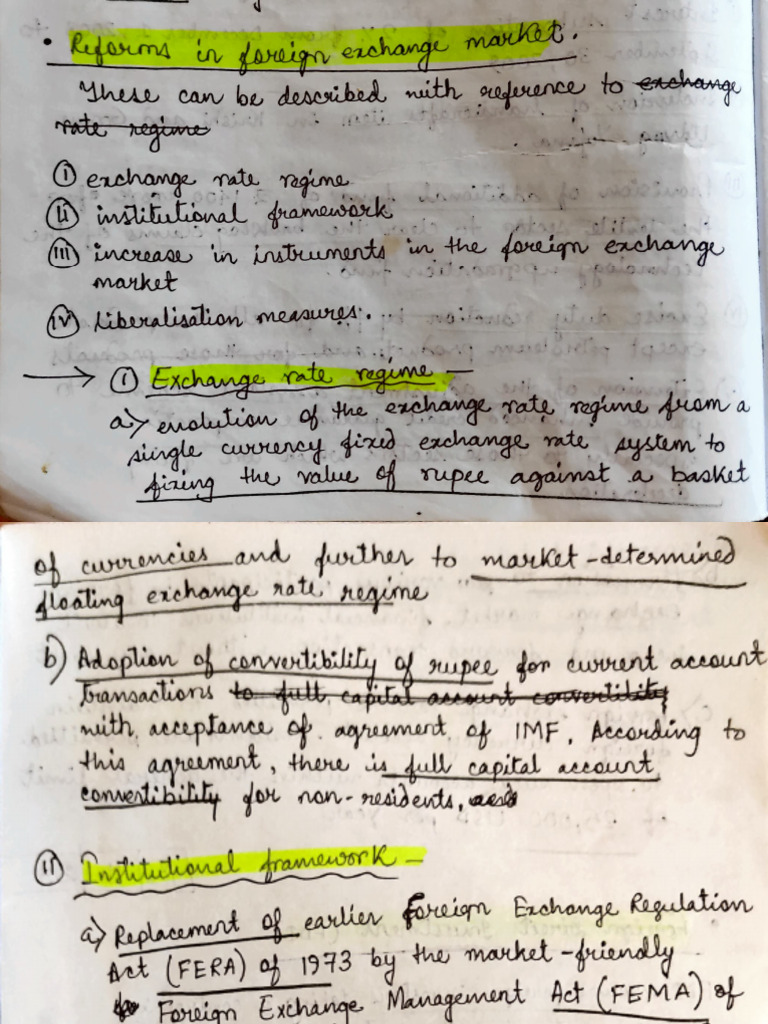 • Reforms in foreign exchange market.
These can be described with reference to exchange
rate regime
(i) exchange rate regime
(ii) institutional framework
(iii) increase in instruments in the foreign exchange
market
(iv) Liberalisation measures.
→ (i) Exchange rate regime —
a) evolution of the exchange rate regime from a
single currency fixed exchange rate system to
fixing the value of rupee against a basket
of currencies and further to market-determined
floating exchange rate regime
b) Adoption of convertibility of rupee for current account
transactions to full capital account convertility
with acceptance of agreement of IMF. According to
this agreement, there is full capital account
convertibility for non-residents,
(ii) Institutional framework —
a) Replacement of earlier Foreign Exchange Regulation
Act (FERA) of 1973 by the market-friendly
Foreign Exchange Management Act (FEMA) of